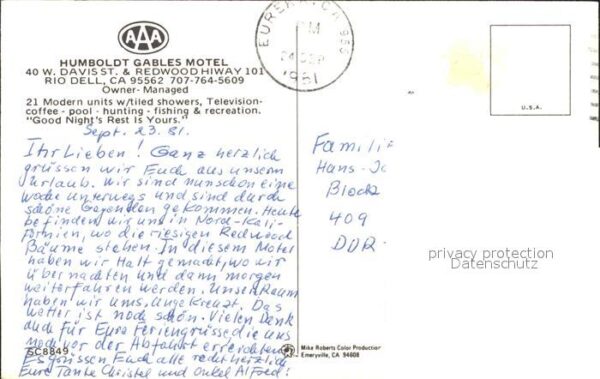 AAA
HUMBOLDT GABLES MOTEL
40 W. DAVIS ST. & REDWOOD HIWAY 101
RIO DELL, CA 95562 707-764-5609
Owner- Managed
21 Modern units w/tiled showers, Television-
coffee - pool - hunting - fishing & recreation.
"Good Night's Rest Is Yours."
Sept. 23. 81.
Ihr Lieben! Ganz herzlich
grüssen wir Euch aus unserm
Urlaub. Wir sind nun schon eine
Woche unterwegs und sind durch
schöne Gegenden gekommen. Heute
befinden wir uns in Nord-Kali-
fornien, wo die riesigen Redwood
Bäume stehen. In diesem Motel
haben wir Halt gemacht, wo wir
übernachten und dann morgen
weiterfahren werden. Unsern Raum
haben wir uns angekreuzt. Das
Wetter ist noch schön. Vielen Dank
auch für Eure Feriengrüsse die uns
noch vor der Abfahrt erreichten.
Es grüssen Euch alle recht herzlich
Eure Tante Christel und Onkel Alfred!
SC8849
EUREKA, CA
PM
24 SEP
1981
U.S.A.
Famili
Hans-Jo
Block
409
DDR-
privacy protection
Datenschutz
Mike Roberts Color Production
Emeryville, CA 94608